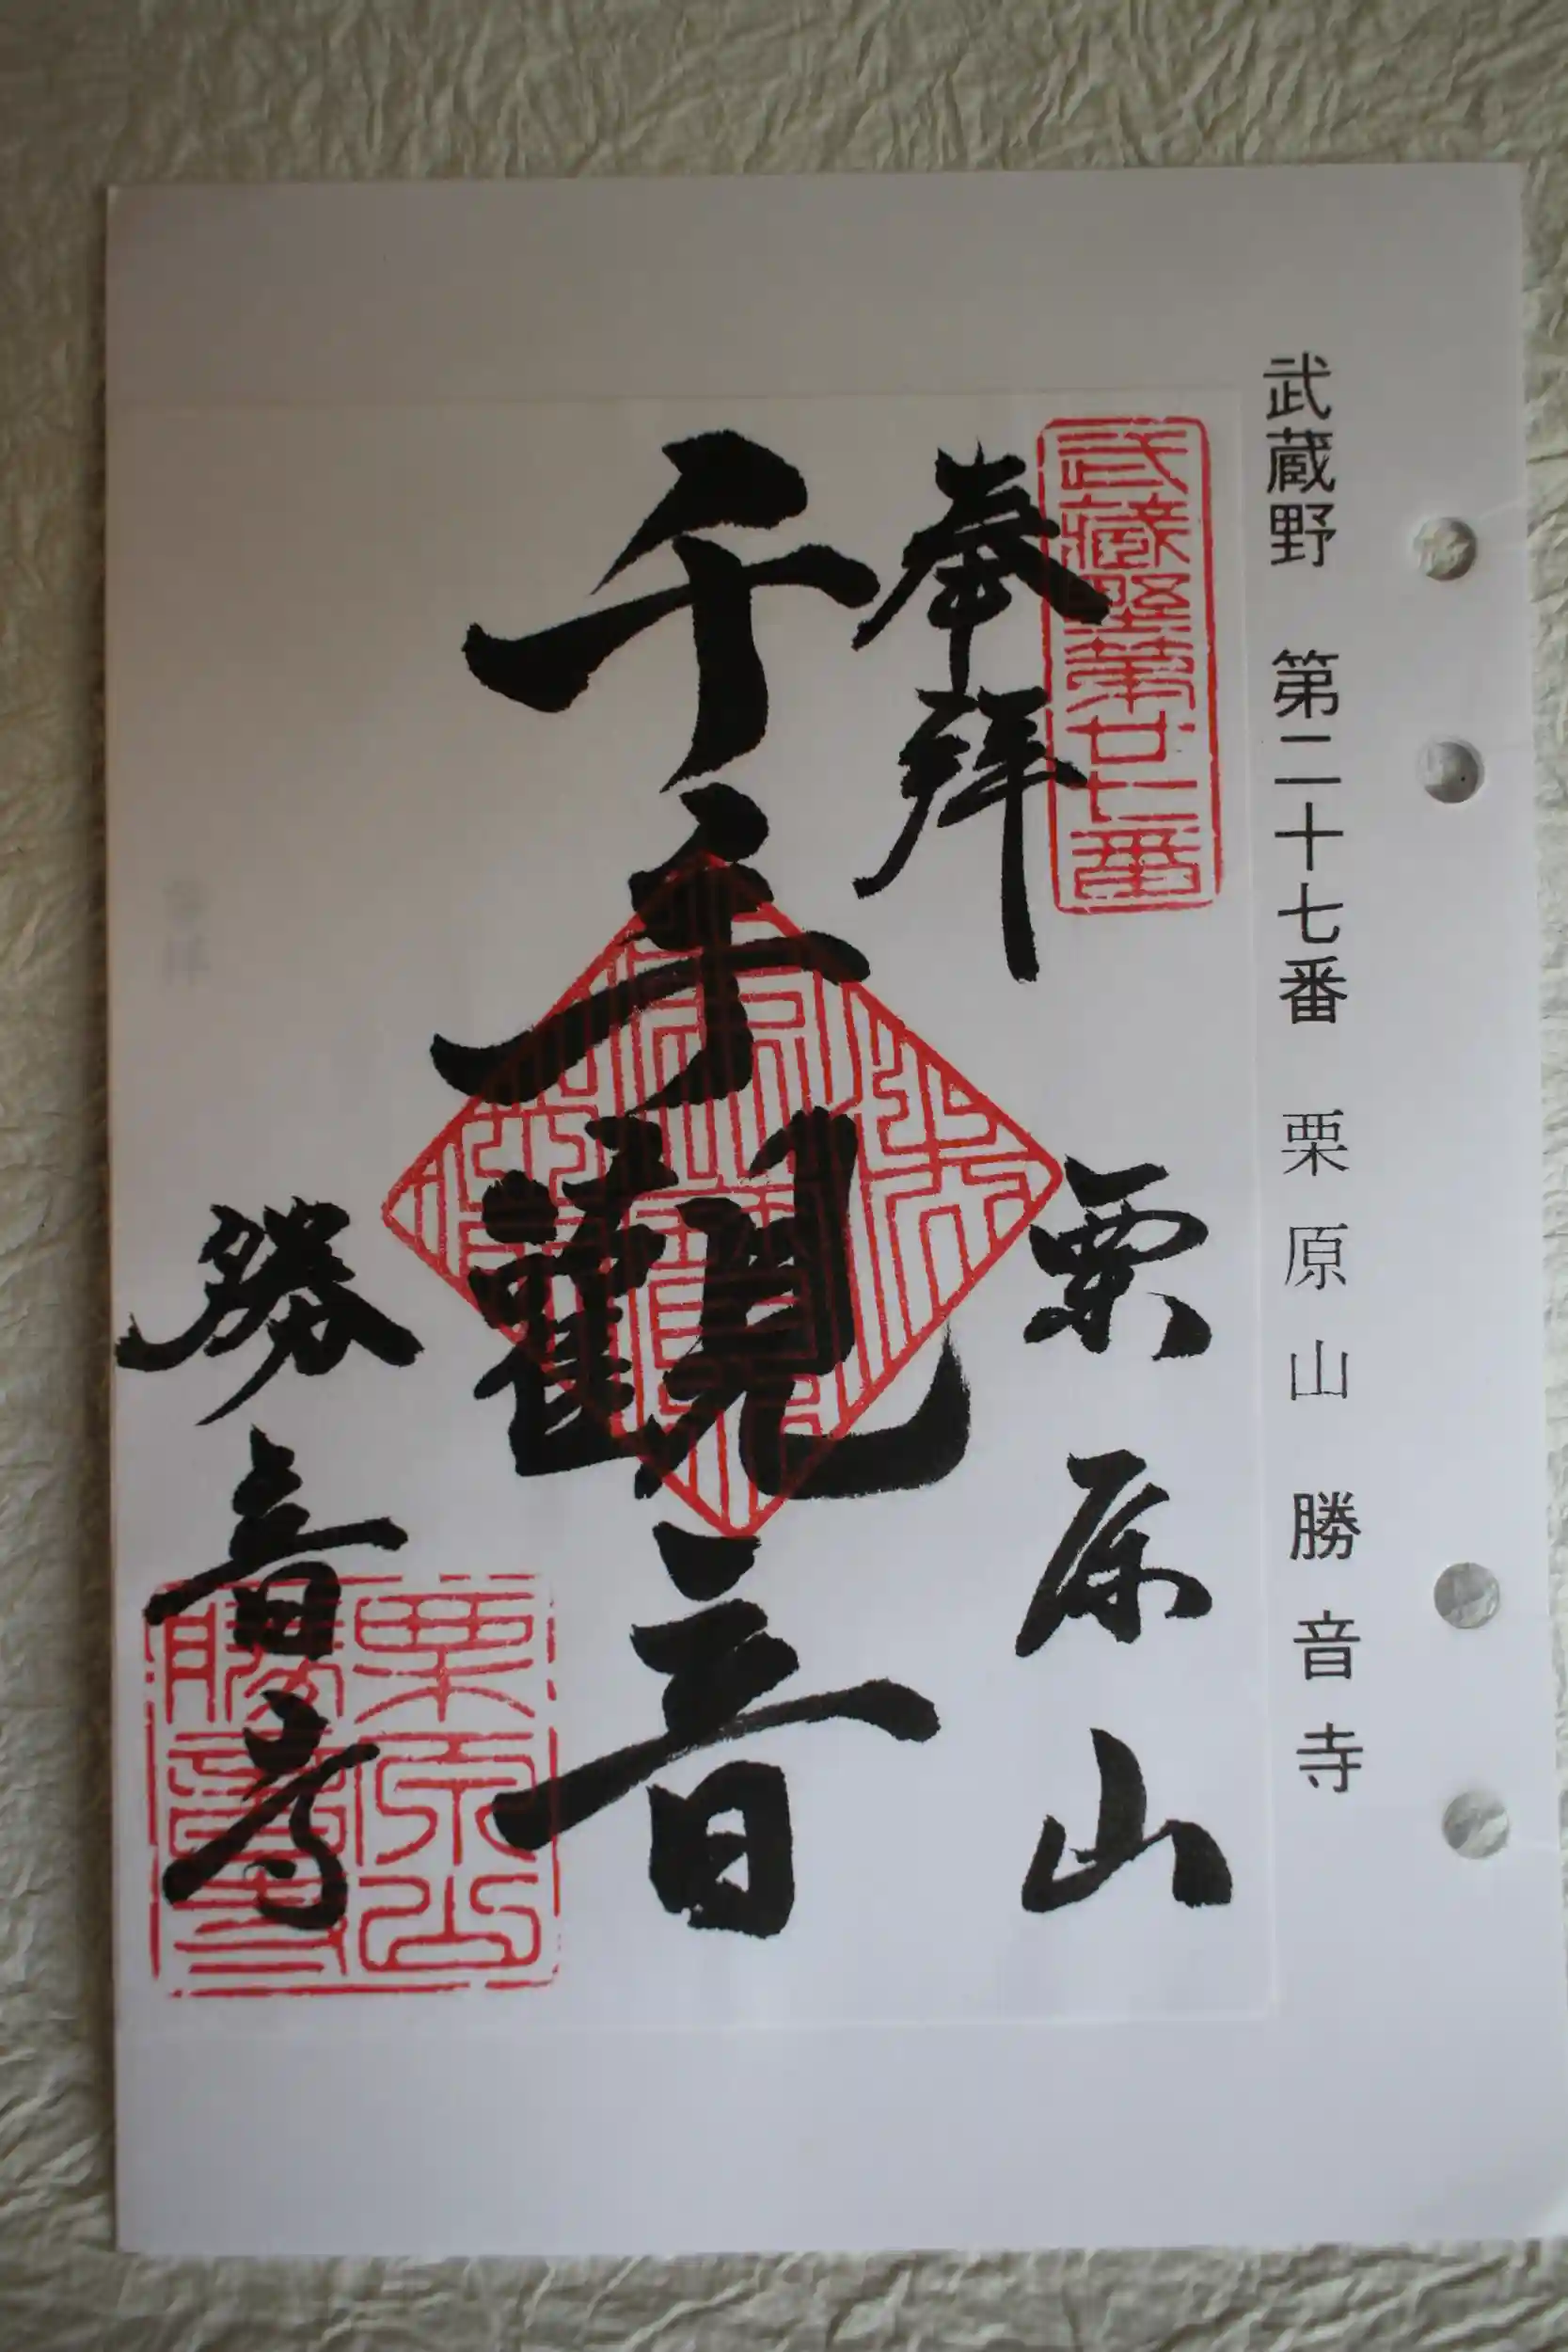 武蔵野 第二十七番 栗原山 勝音寺
武藏野第廿七番
奉拝
栗原山
千手觀音
勝音寺
栗原山
勝音寺